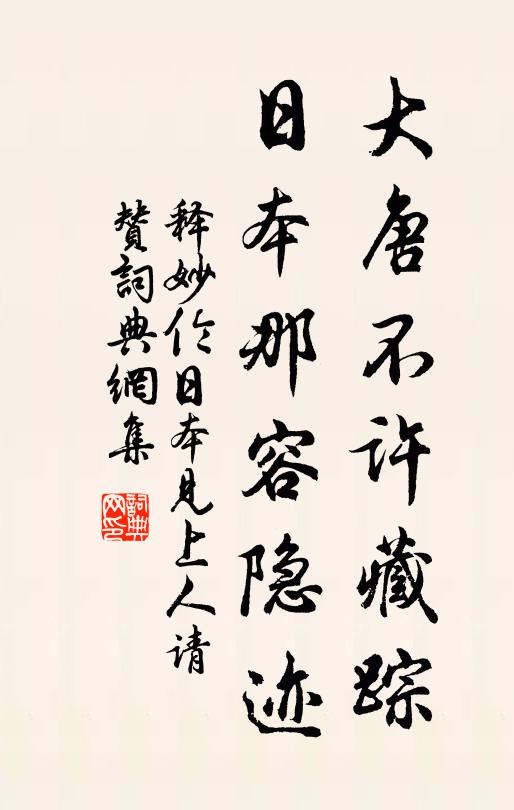 大唐不许藏踪
日本那容隐迹
释妙伦日本见上人请
赞詞典網集
詞典
网印